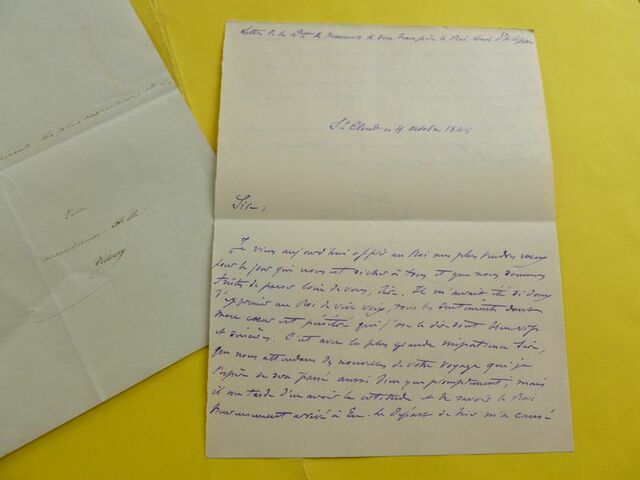 Lettre de la Dsse de Nemours à son beau père le Roi Louis Philippe
St Cloud ce 4 octobre 184
Sire,
Je viens aujourd'hui offrir au Roi mes plus tendres vœux
pour le jour qui nous est si cher à tous et que nous sommes
tristes de passer loin de vous, Sire. Il m'aurait été si doux
d'exprimer au Roi de vive voix, tous les sentiments dont
mon cœur est pénétré qui j'ose le dire sont bien vifs
et sincères. C'est avec la plus grande impatience Sire,
que nous attendons des nouvelles de votre voyage que je
espère se sera passé aussi bien que promptement, mais
il me tarde d'en avoir la certitude et de savoir le Roi
heureusement arrivé à Eu. Le départ de hier m'a causé
les plus
Votre
Victoire